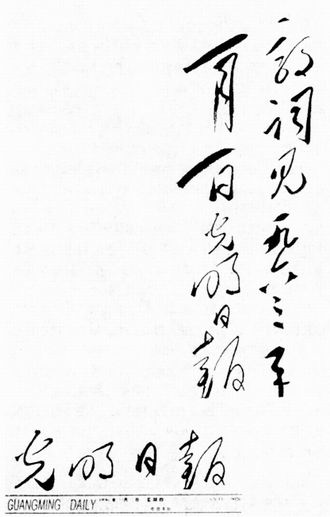 郭词见一九六三年
一月一日光明日報
光明日報
GUANGMING DAILY